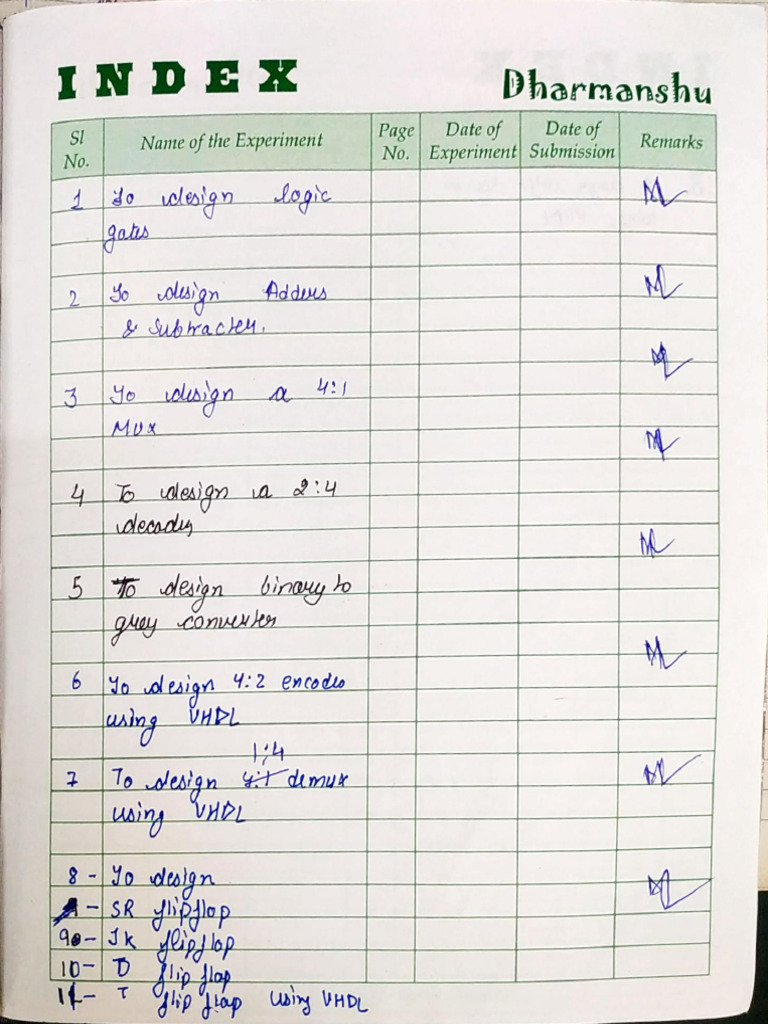 INDEX
Dharmanshu
Sl No. Name of the Experiment Page No. Date of Experiment Date of Submission Remarks
1 To design logic
gates
2 To design Adders
& Subtracter.
3 To design a 4:1
MUX
4 To design a 2:4
decoder
5 To design binary to
grey converter
6 To design 4:2 encoder
using VHDL
1:4
7 To design 4:1 demux
using VHDL
8 - To design
- SR flipflop
9 - JK flipflop
10 - D flip flop
11 - T flip flop using VHDL